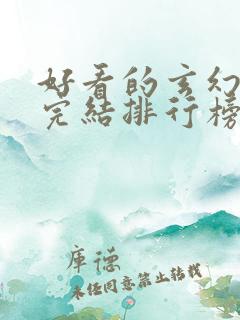 好看的玄幻
完结排行榜
库德
未经同意禁止转载